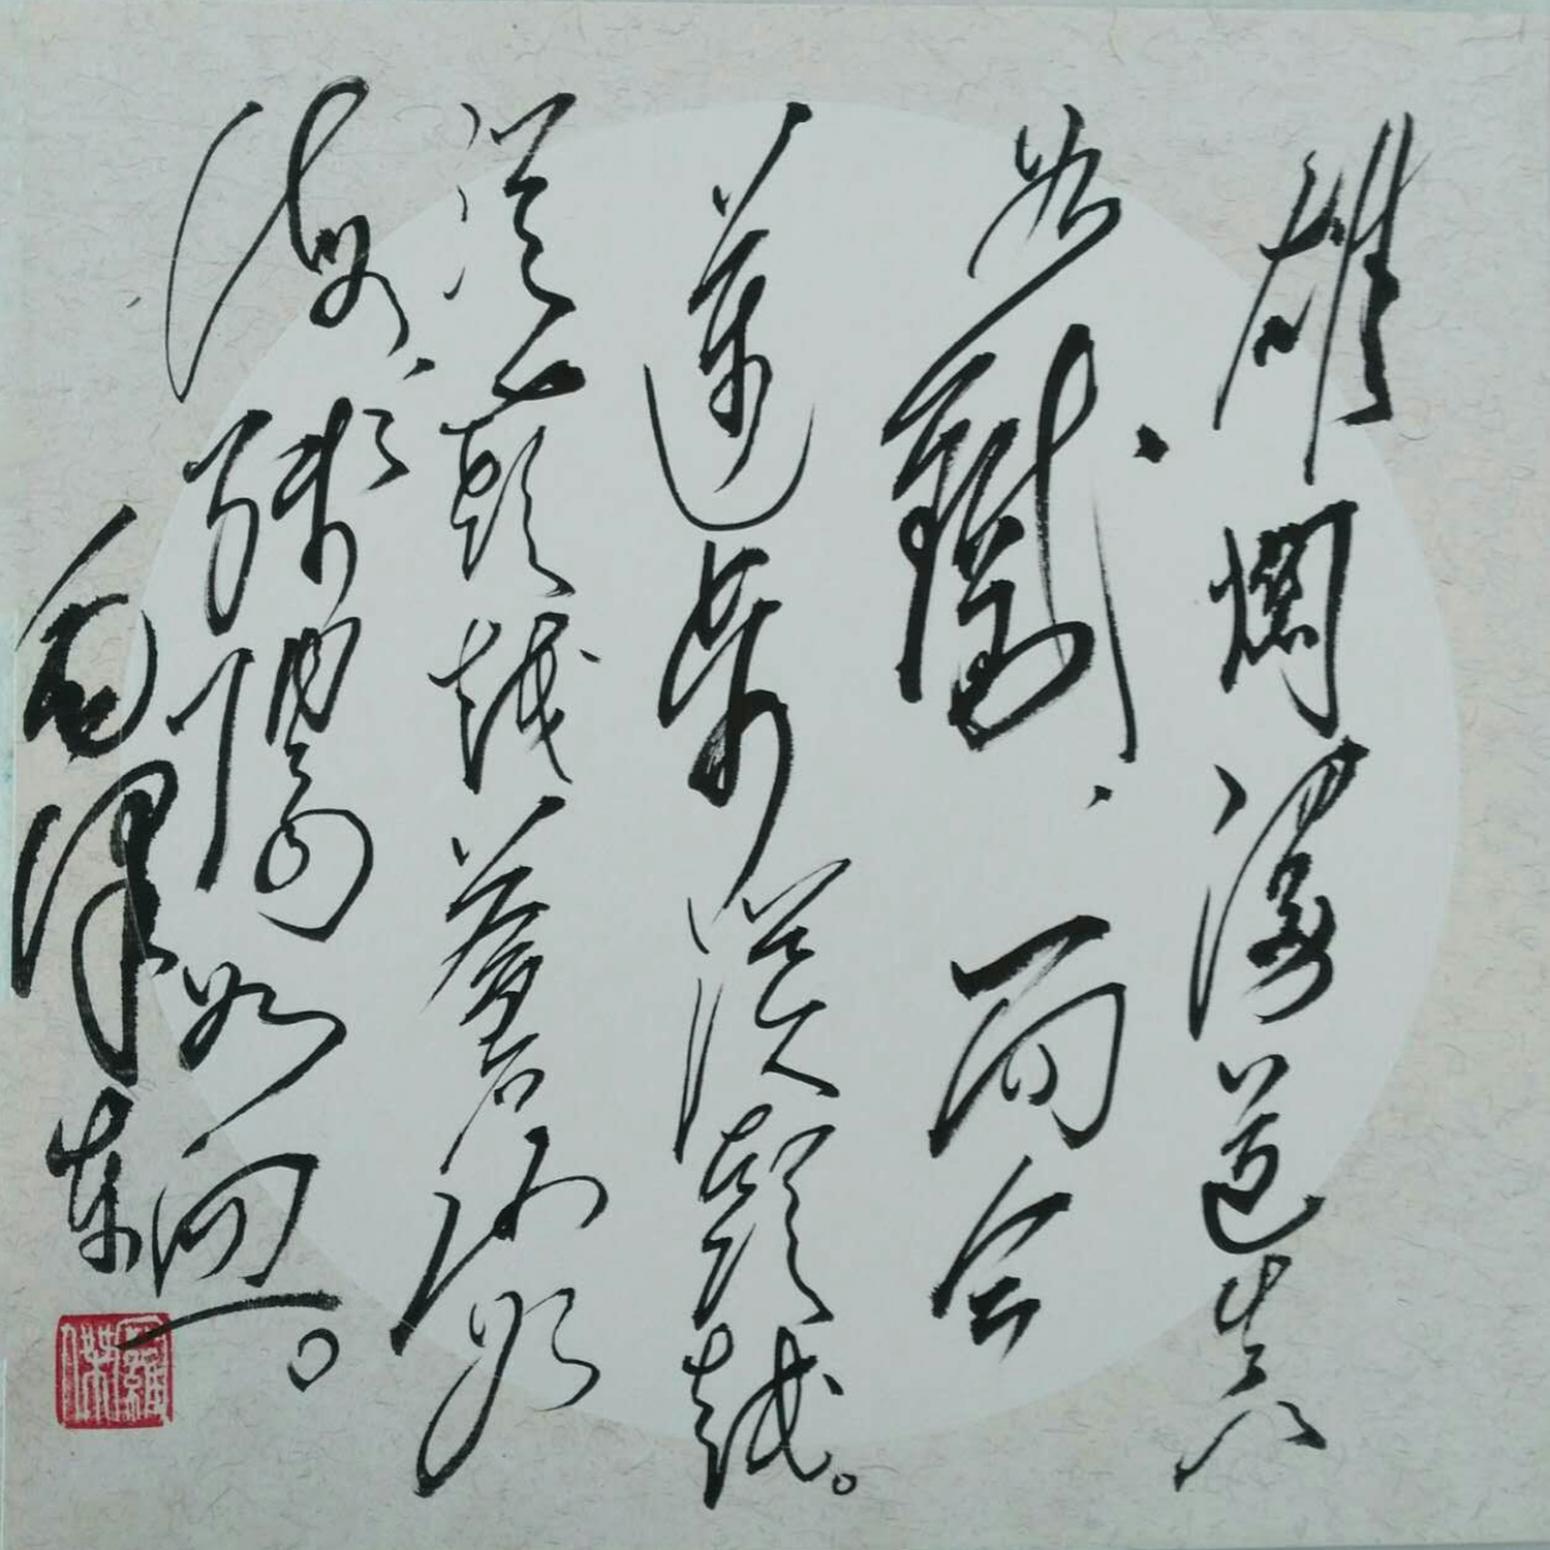 雄関漫道真
如鐵、而今
邁步從頭越。
從頭越蒼山如
海、殘陽如血。
毛澤東
羅傑